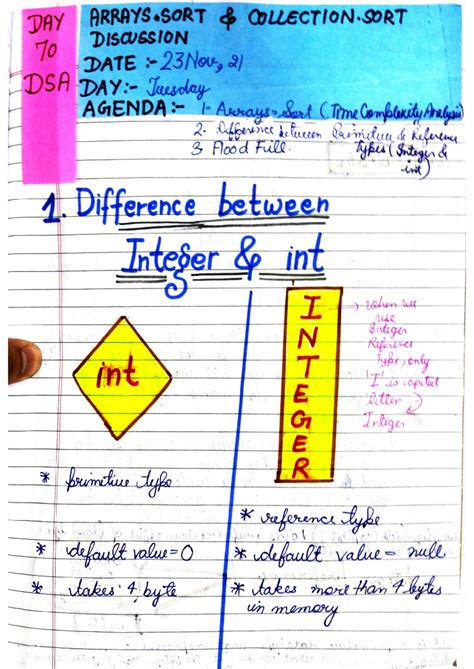 DAY
70
DSA
ARRAYS.SORT & COLLECTION.SORT
DISCUSSION
DATE :- 23 Nov, 21
DAY:- Tuesday
AGENDA:- 1- Arrays.Sort (Time Complexity Analysis)
2. Difference between Primitive & Reference
Types (Integer &
int)
3 Flood Fill.
1. Difference between
Integer & int
int
INTEGER
→ when we
use
Integer
Reference
type, only
'I' is capital
letter
Integer
* primitive type
* default value = 0
* takes 4 byte
* reference type
* default value = null
* takes more than 4 bytes
in memory